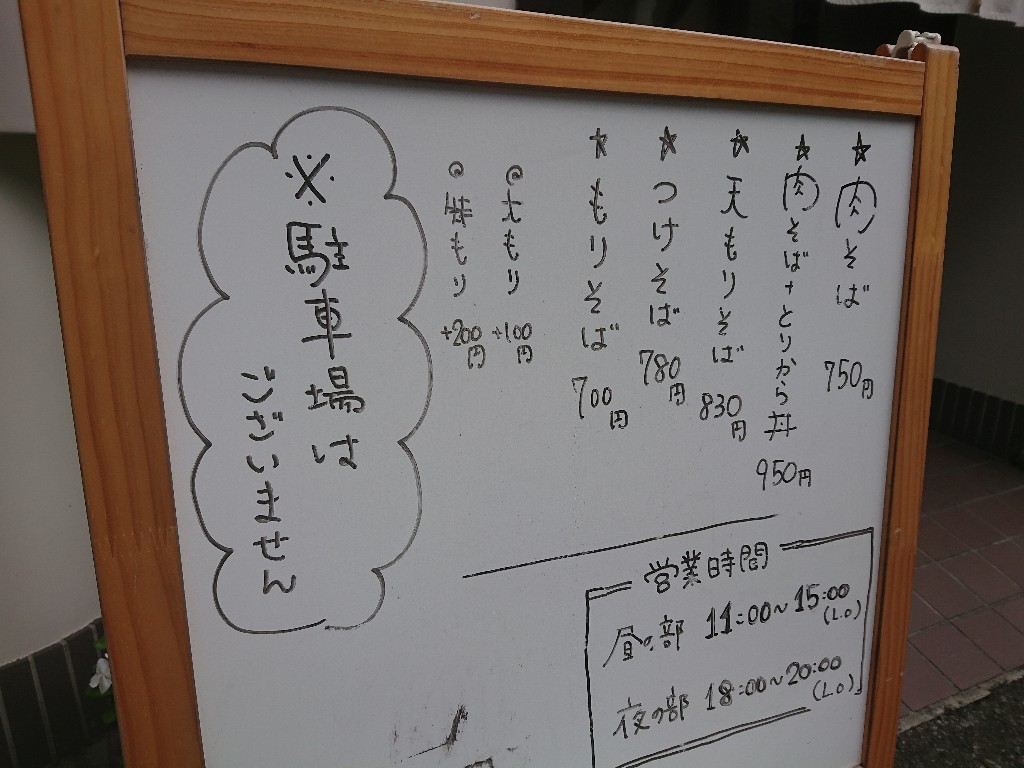 ★ 肉そば 750円
★ 肉そば+とりから丼 950円
★ 天もりそば 830円
★ つけそば 780円
★ もりそば 700円
◎大もり +100円
◎特もり +200円
※駐車場は
ございません
営業時間
昼の部 11:00~15:00 (L.O)
夜の部 18:00~20:00 (L.O)